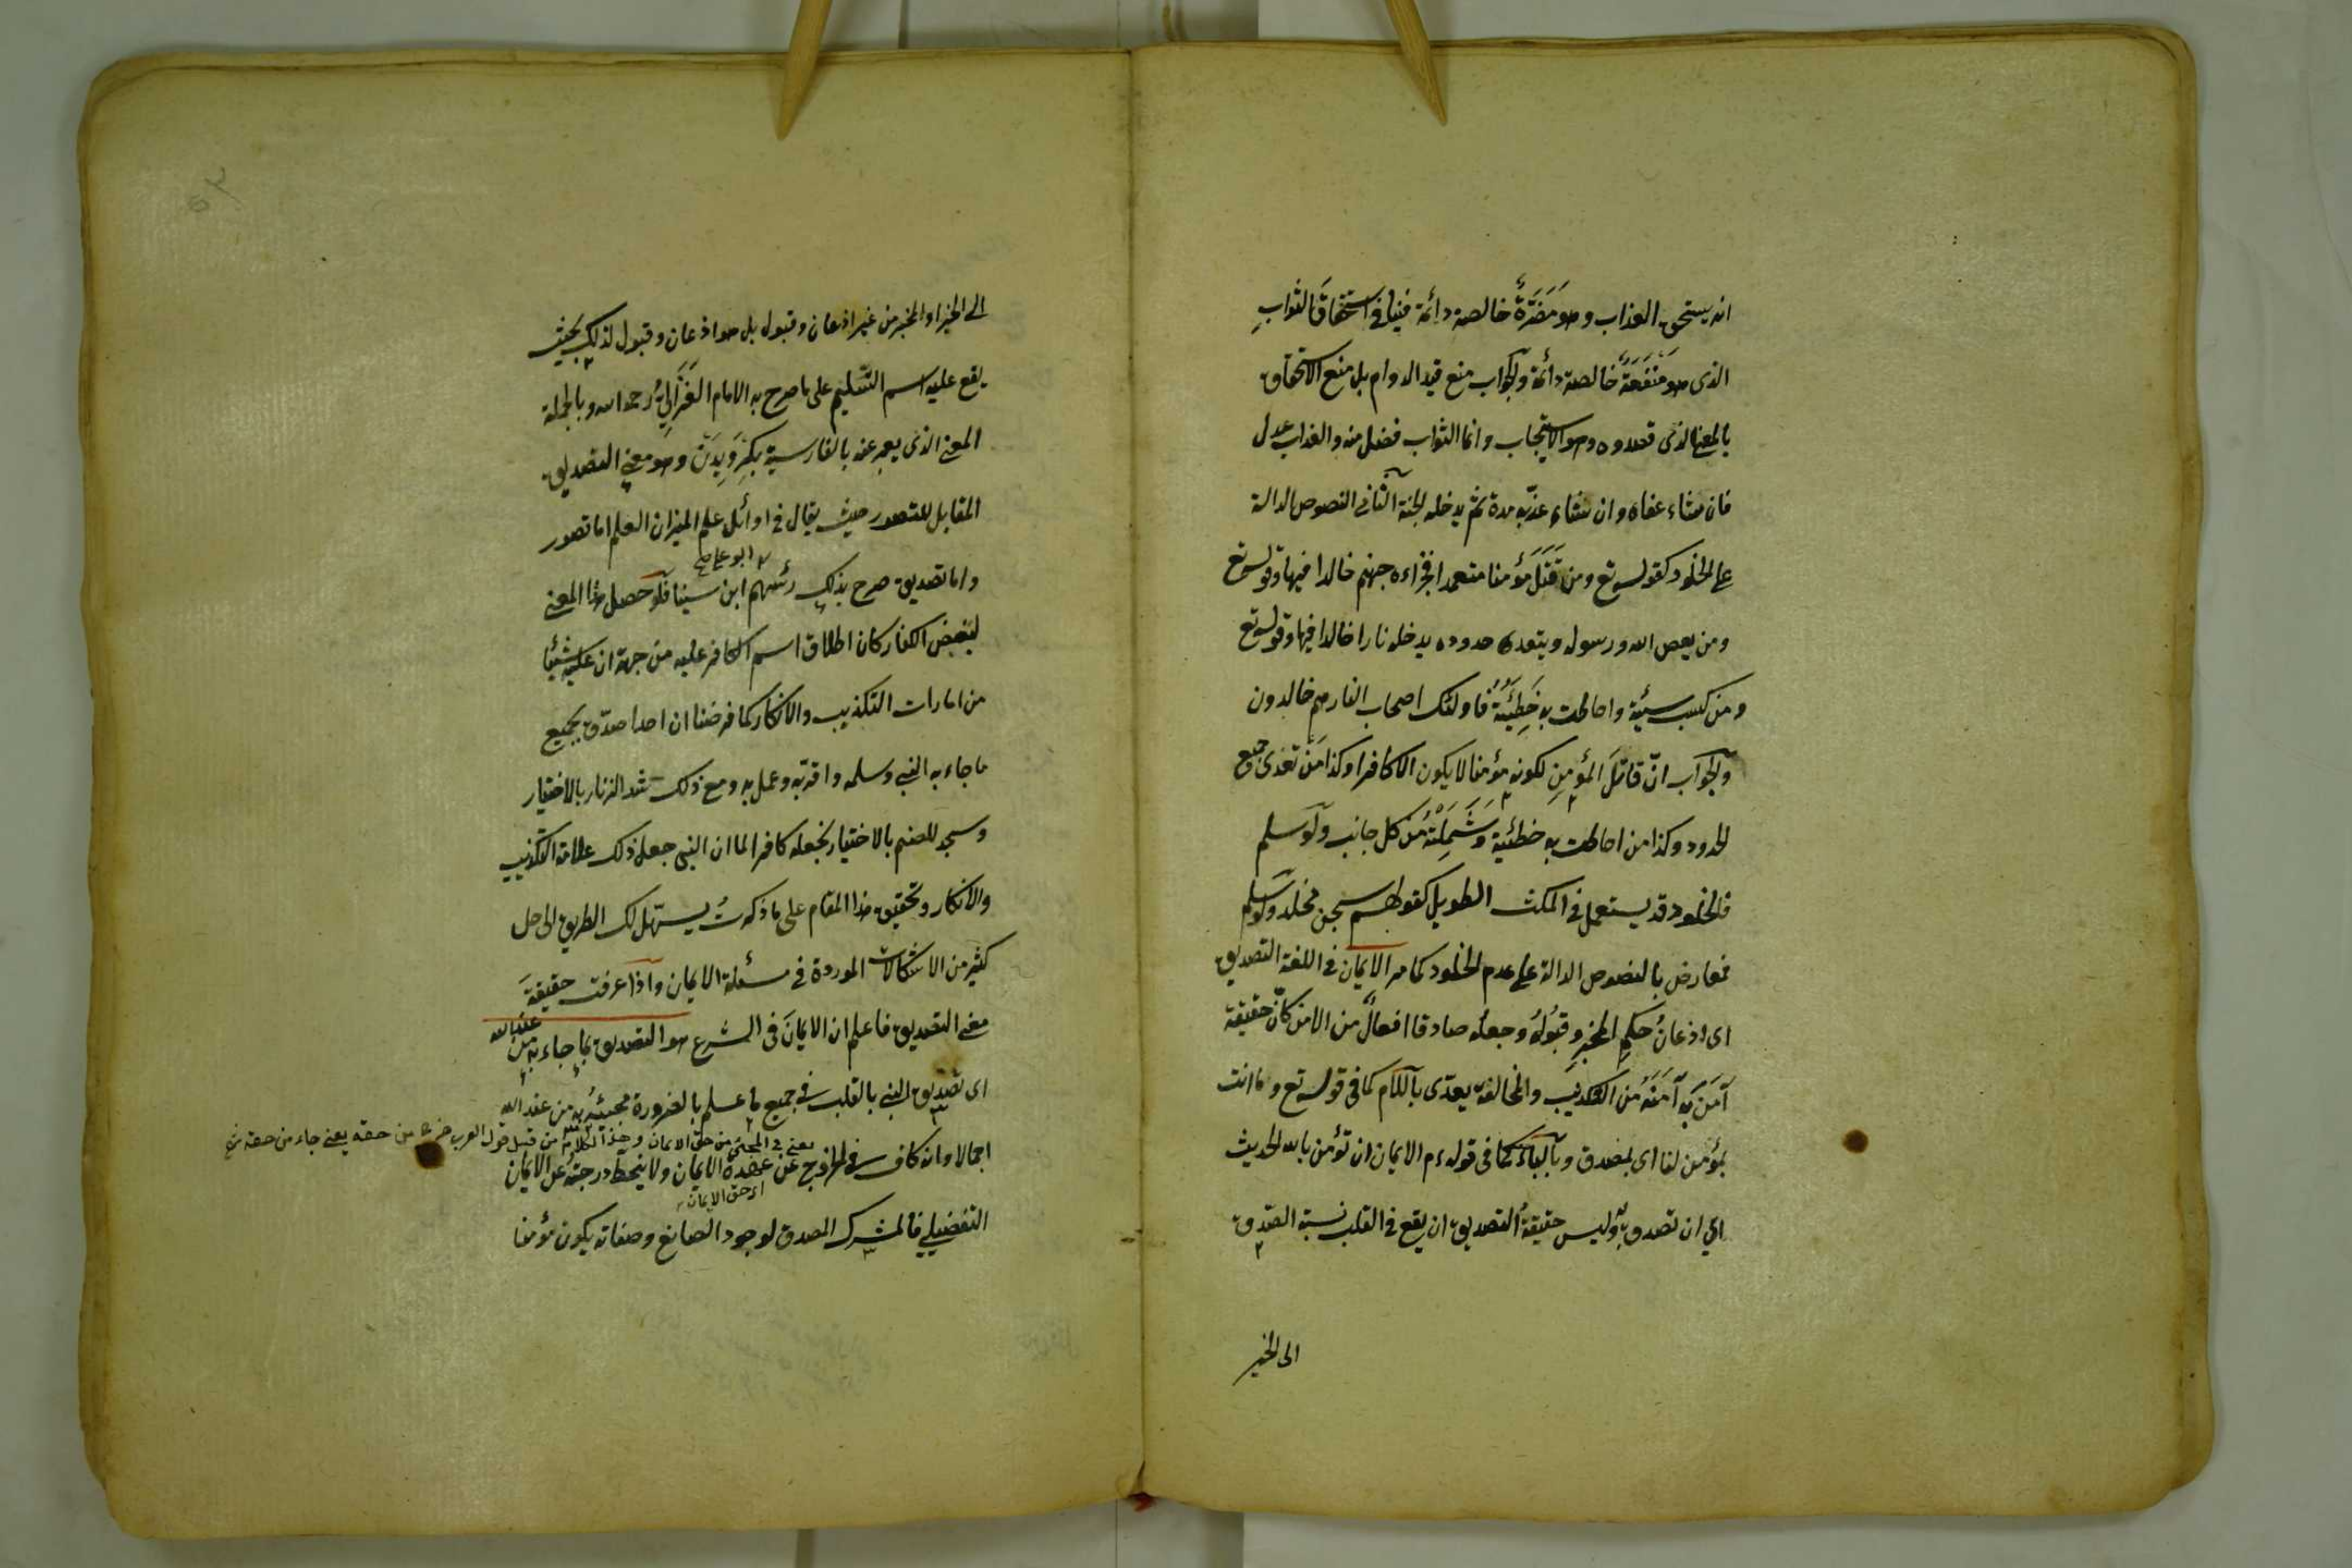 انه يستحق العذاب وهو مَضَرَّةٌ خالصة دائمة فينافى استحقاقَ الثوابِ
الذى هو مَنْفَعَةٌ خالصة دائمة والجواب منع قيد الدوام بل منع الاستحقاق
بالمعنى الذى قصدوه وهو الاستيجاب وانما الثواب فضل منه والعذاب عدل
فان شاء عفاه وان شاء عذّبه مدة ثم يدخله الجنة الثانى النصوص الدالة
على الخلود كقوله تع ومن قَتَلَ مؤمنا متعمدا فجزاءه جهنم خالدا فيها وقوله تع
ومن يعص الله ورسوله ويتعد حدوده يدخله نارا خالدا فيها وقوله تع
ومن كسب سيئة واحاطت به خَطِيْئَتُهُ فاولئك اصحاب النار هم خالدون
والجواب انّ قاتلَ المؤمنِ لكونه مؤمنا لا يكون الا كافرا وكذا مَنْ تعدى جميع
الحدود وكذا من احاطت به خطئيته وَشَمِلَتْهُ من كل جانب ولو سلم
فالخلود قد يستعمل فى المكث الطويل كقولهم سجن مخلد ولو سلم
فمعارض بالنصوص الدالة على عدم الخلود كما مر الايمان فى اللغة التصديق
اى اذعانُ حكمِ المخبرِ وقبُولُهُ وجعلُه صادقا افعالٌ من الامن كانّ حقيقة
آمَنَ بِه آمَنَهُ من التكذيب والمخالفة يعدّى باللام كما فى قوله تع وما انت
بمؤمن لنا اى بمصدق وبالباء كما فى قوله ءم الايمان ان تؤمن بالله الحديث
اى ان تصدق به وليس حقيقةُ التصديق ان يقع فى القلب نسبة الصّدق
الى الخبر
الى الخبر او المخبر من غير اذعان وقبول بل هو اذعان وقبول لذلك بحيث
يقع عليه اسم التسليم على ما صرح به الامام الغَزَّالِيُّ رحمه الله وبالجملة
المعنى الذى يعبر عنه بالفارسية بكِرَوِيدَنْ وهو معنى التصديق
المقابل للتصور حيث يقال فى اوائل علم الميزان العلم اما تصور
ابو على
واما تصديق صرح بذلك رئيسهم ابن سينا فلو حصل هذا المعنى
لبعض الكفار كان اطلاق اسم الكافر عليه من جهة ان عليه شيئا
من امارات التكذيب والانكار كما فرضنا ان احدا صدّق بجميع
ما جاء به النبى وسلمه واقر به وعمل به ومع ذلك شد الزنار بالاختيار
وسجد للصنم بالاختيار نجعله كافرا لما ان النبى جعل ذلك علامة التكذيب
والانكار وتحقيق هذا المقام على ما ذكرتُ يسهّل لك الطريق الى حل
كثير من الاشكالات الموردة فى مسئلة الايمان واذا عرفت حقيقةَ
معنى التصديق فاعلم ان الايمانَ فى الشرع هو التصديق بما جاء به من عند الله
اى تصديق النبى بالقلب فى جميع ما علم بالضرورة مجيئُه به من عند الله
يعنى فى المجئ من حق الايمان وهذا الكلام من قبيل قول العرب خرج من حقه يعنى جاء من حقه
اجمالا وانه كاف فى الخروج عن عهدة الايمان ولا ينحط درجتُه عن الايمان
اى حق الايمان
التفصيلى فالمشرك المصدق لوجود الصانع وصفاته يكون مؤمنا